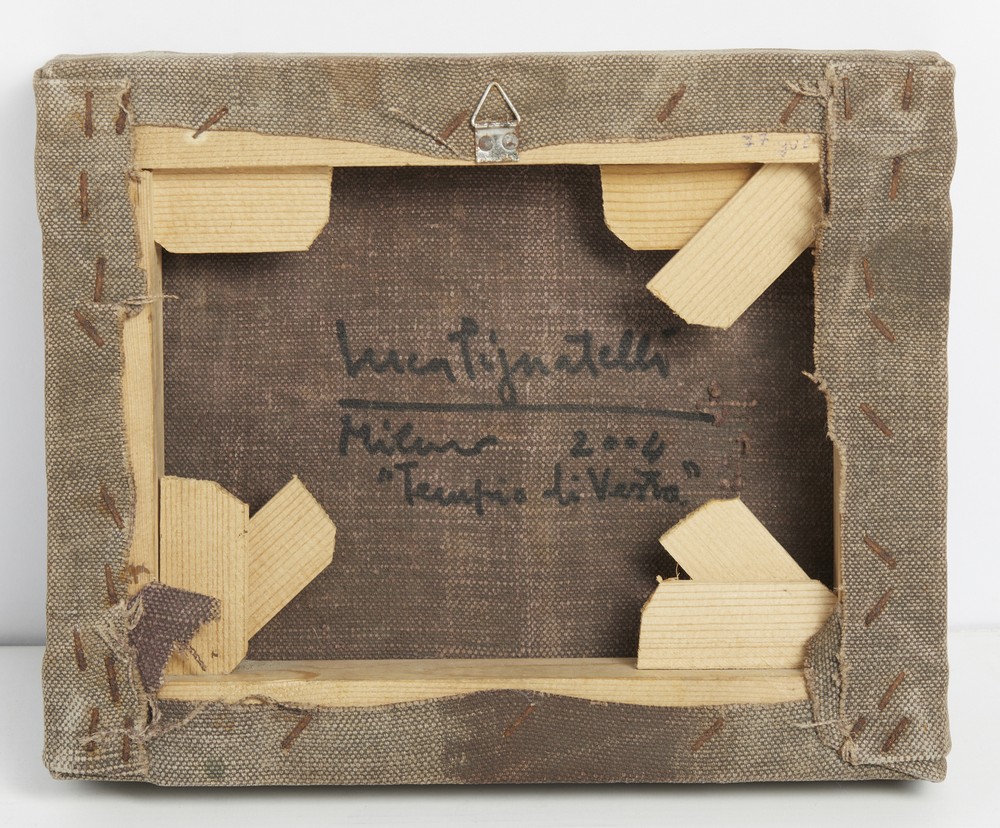 77
Luca Pignatelli
Milano 2004
"Tempio di Vesta"